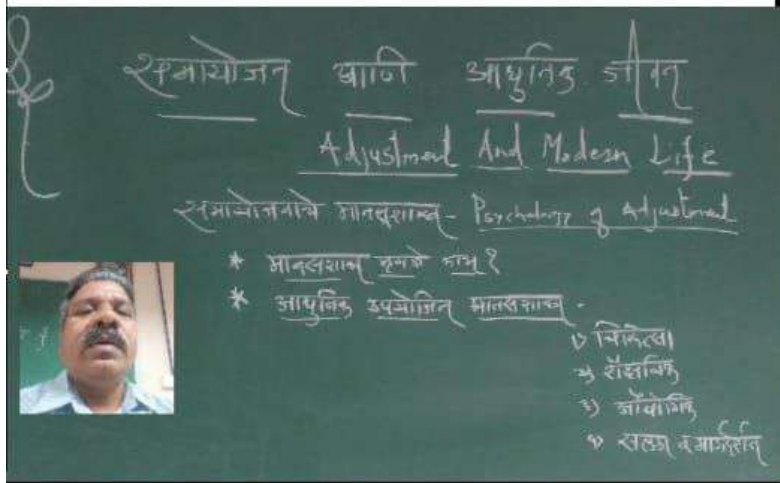 समायोजन आणि आधुनिक जीवन
Adjustment And Modern Life
समायोजनाचे मानसशास्त्र - Psychology of Adjustment
* मानसशास्त्र म्हणजे काय ?
* आधुनिक उपयोजित मानसशास्त्र -
१) चिकित्सा
२) शैक्षणिक
३) औद्योगिक
४) सल्ला व मार्गदर्शन